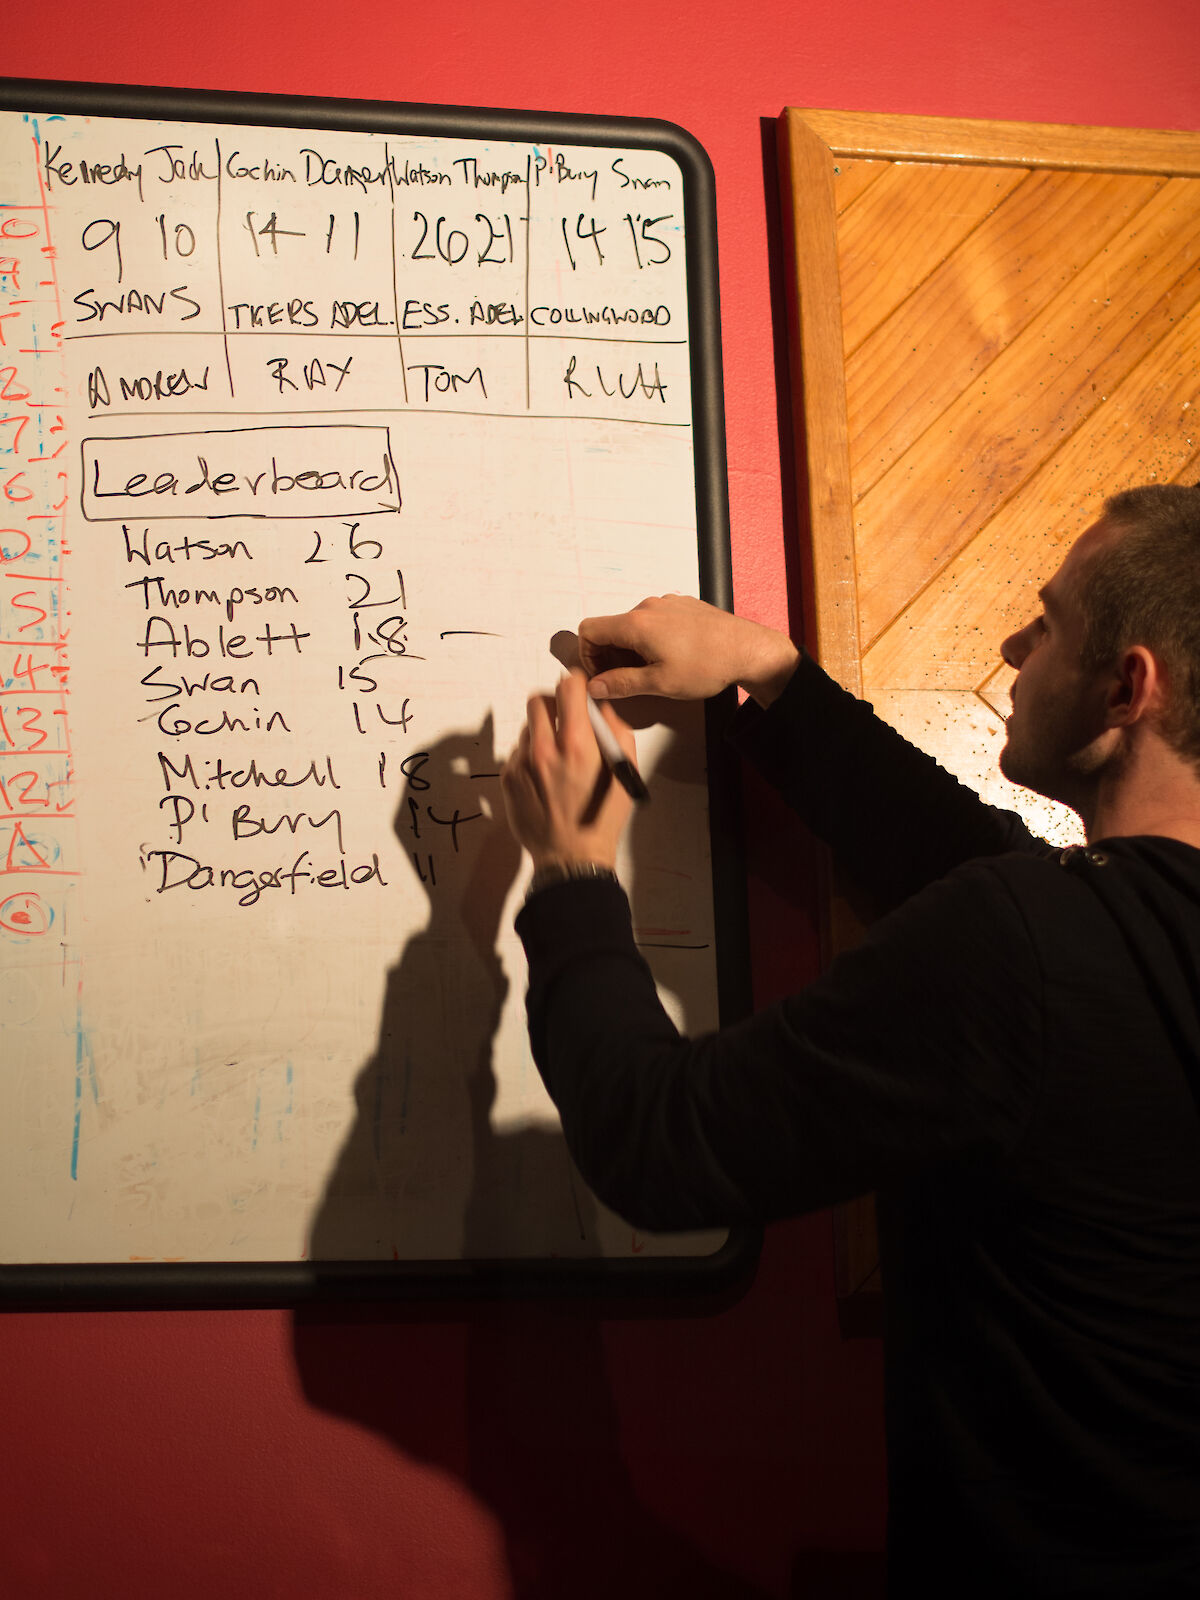 Kennedy Jack Cochin Danger Watson Thompson P'Bury Swan
9 10 14 11 26 21 14 15
SWANS TIGERS ADEL. ESS. ADEL COLLINGWOOD
ANDREW RAY TOM RICH
Leaderboard
Watson 26
Thompson 21
Ablett 18 —
Swan 15
Cochin 14
Mitchell 18 —
P' Bury 14
Dangerfield 11